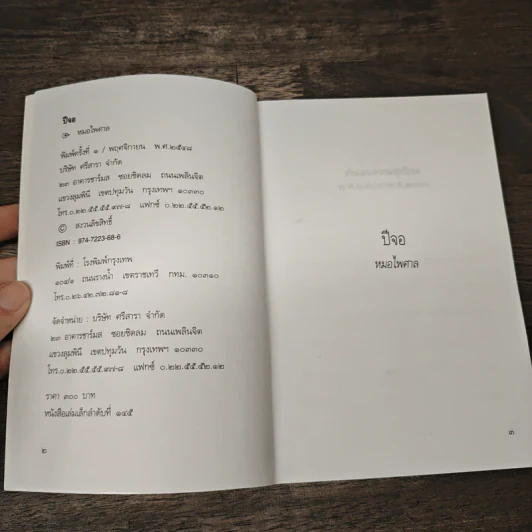 ปีจอ
หมอไพศาล
พิมพ์ครั้งที่ ๑ / พฤศจิกายน พ.ศ.๒๕๔๘
บริษัท ศรีสารา จำกัด
๒๓ อาคารชาร์มส ซอยชิดลม ถนนเพลินจิต
แขวงลุมพินี เขตปทุมวัน กรุงเทพฯ ๑๐๓๓๐
โทร.๐.๒๒.๕๕.๕๕.๙๗-๘ แฟกซ์ ๐.๒๒.๕๕.๕๒.๑๒
© สงวนลิขสิทธิ์
ISBN : 974-7223-68-6
พิมพ์ที่ : โรงพิมพ์กรุงเทพ
๑๐๙/๑ ถนนรางน้ำ เขตราชเทวี กทม. ๑๐๓๑๐
โทร.๐.๒๖.๔๒.๗๒.๘๑-๘
จัดจำหน่าย : บริษัท ศรีสารา จำกัด
๒๓ อาคารชาร์มส ซอยชิดลม ถนนเพลินจิต
แขวงลุมพินี เขตปทุมวัน กรุงเทพฯ ๑๐๓๓๐
โทร.๐.๒๒.๕๕.๕๕.๙๗-๘ แฟกซ์ ๐.๒๒.๕๕.๕๒.๑๒
ราคา ๓๐๐ บาท
หนังสือเล่มเล็กลำดับที่ ๑๔๕
๒
ปีจอ
หมอไพศาล
๓